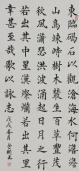 東臨碣石以觀滄海水何澹澹
山島竦峙樹木叢生百草豐茂
秋風蕭瑟洪波湧起日月之行
若出其中星漢燦爛若出其裏
幸甚至哉歌以詠志